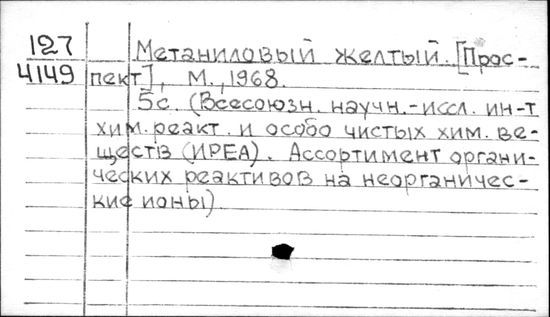 127 Метаниловый желтый. [Прос-
4149 пект], М., 1968.
5с. (Всесоюзн. научн.-иссл. ин-т
хим. реакт. и особо чистых хим. ве-
ществ (ИРЕА). Ассортимент органи-
ческих реактивов на неорганичес-
кие ионы)